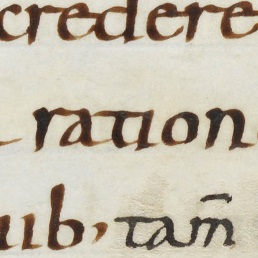 credere
ration
ub, tam̅